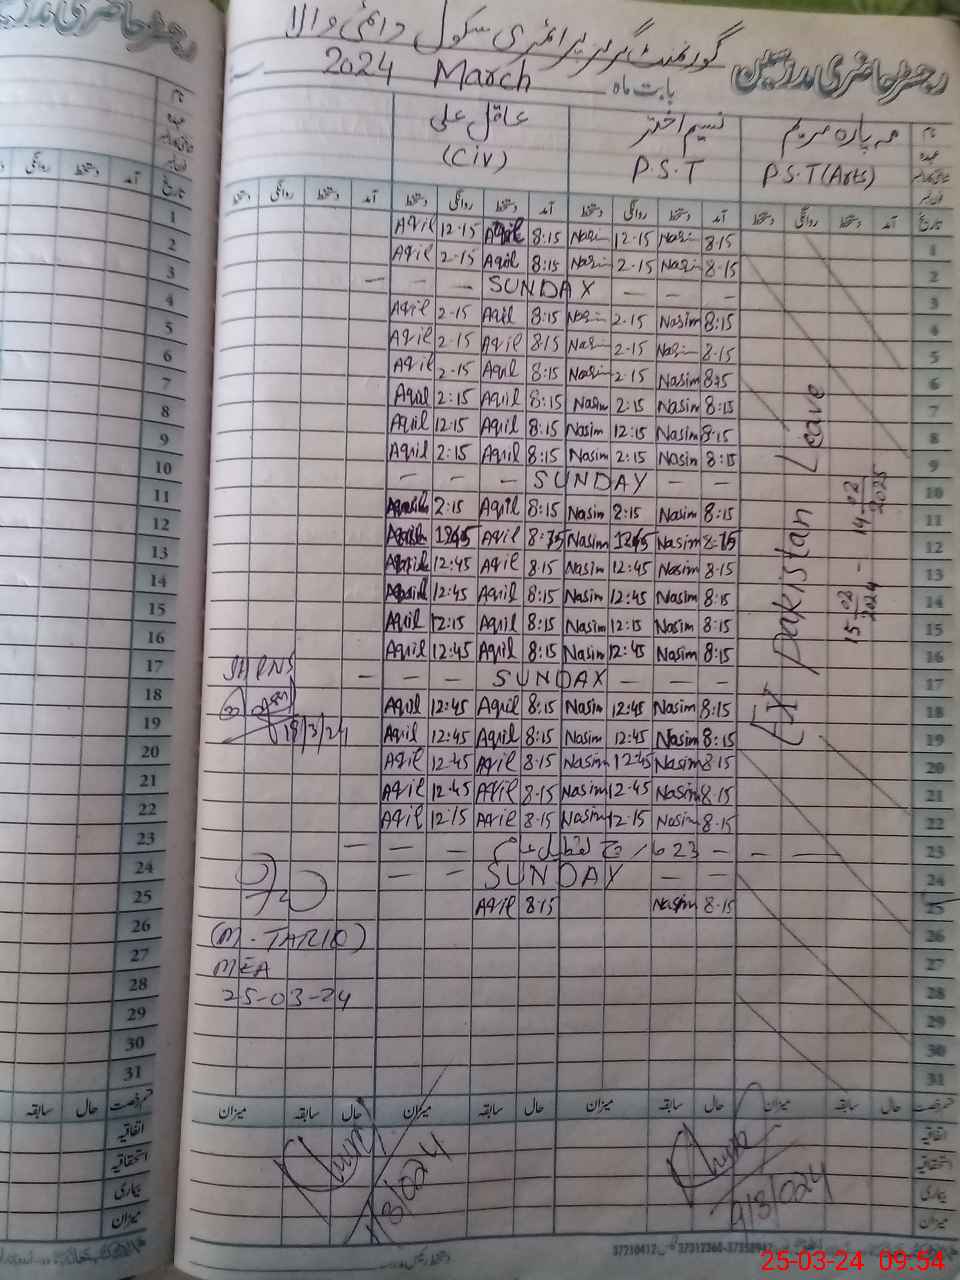 رجسٹر حاضری مدرسین گورنمنٹ گرلز پرائمری سکول
بابت ماہ March 2024
مہ پارہ مریم نسیم اختر عاقل علی
P.S.T (Arts) P.S.T (Civ)
تاریخ آمد دستخط روانگی دستخط آمد دستخط روانگی دستخط آمد دستخط روانگی دستخط آمد دستخط روانگی دستخط
1 8:15 Nasim 12-15 Nasim 8:15 Aqil 12-15 Aqil
2 8-15 Nasim 2-15 Nasim 8:15 Aqil 2-15 Aqil
3 — — — SUNDAY — — —
4 8:15 Nasim 2-15 Nasim 8:15 Aqil 2-15 Aqil
5 8-15 Nasim 2-15 Nasim 8:15 Aqil 2-15 Aqil
6 Nasim 2-15 Nasim 8:15 Aqil 2-15 Aqil
7 8:15 Nasim 2:15 Nasim 8:15 Aqil 2:15 Aqil
8 8:15 Nasim 12:15 Nasim 8:15 Aqil 12:15 Aqil
9 8:15 Nasim 2:15 Nasim 8:15 Aqil 2:15 Aqil
10 — — SUNDAY — — —
11 8:15 Nasim 2:15 Nasim 8:15 Aqil 2:15
12 Nasim Nasim Aqil
13 8:15 Nasim 12:45 Nasim 8:15 Aqil 12:45
14 8:15 Nasim 12:45 Nasim 8:15 Aqil 12:45
15 8:15 Nasim 12:15 Nasim 8:15 Aqil 12:15 Aqil
16 8:15 Nasim 12:45 Nasim 8:15 Aqil 12:45 Aqil
17 — — — SUNDAY — — —
18 8:15 Nasim 12:45 Nasim 8:15 Aqil 12:45 Aqil
19 8:15 Nasim 12:45 Nasim 8:15 Aqil 12:45 Aqil
20 8:15 Nasim 12:45 Nasim 8:15 Aqil 12:45 Aqil
21 8-15 Nasim 12-45 Nasim 8-15 Aqil 12-45 Aqil
22 8-15 Nasim 12-15 Nasim 8-15 Aqil 12-15 Aqil
23 — — — 23 مارچ — — —
24 — — SUNDAY — —
25 8-15 Nasim 8:15 Aqil
26
27
28
29
30
31
EX Pakistan Leave
15-02-2024 - 14-02-2025
18/3/24
(M. TARIQ)
MEA
25-03-24
قسم رخصت حال سابقہ میزان حال سابقہ میزان حال سابقہ میزان حال سابقہ میزان
اتفاقیہ
استحقاقیہ
بیماری
میزان
37210412 37312360-37358947
1
2
3
4
5
6
7
8
9
10
11
12
13
14
15
16
17
18
19
20
21
22
23
24
25
26
27
28
29
30
31
قسم رخصت حال سابقہ
اتفاقیہ
استحقاقیہ
بیماری
میزان
25-03-24 09:54